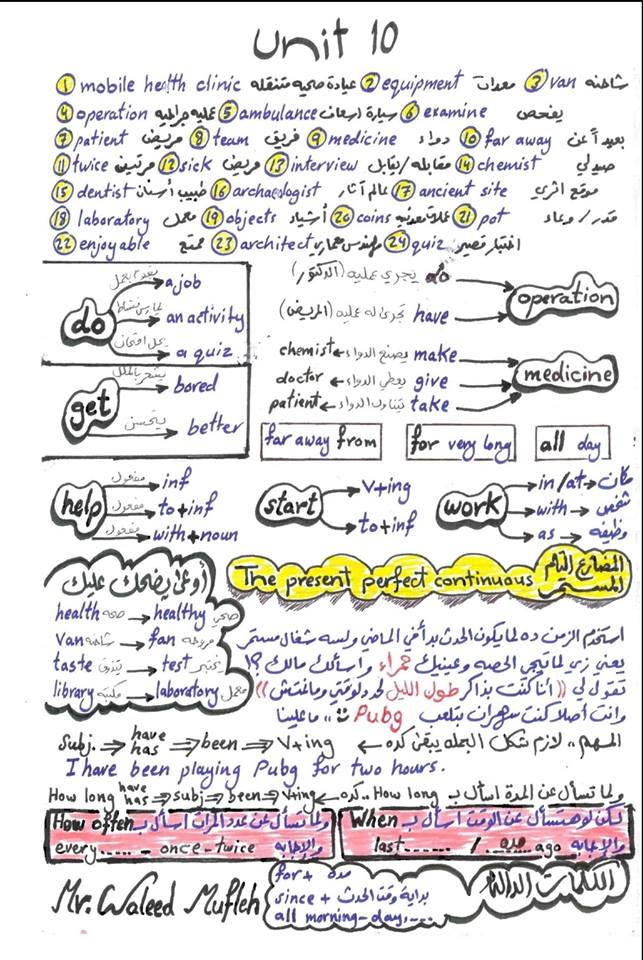 Unit 10
① mobile health clinic عيادة صحيه متنقله ② equipment معدات ③ van شاحنه
④ operation عمليه جراحيه ⑤ ambulance سيارة إسعاف ⑥ examine يفحص
⑦ patient مريض ⑧ team فريق ⑨ medicine دواء ⑩ far away بعيداً عن
⑪ twice مرتين ⑫ sick مريض ⑬ interview مقابله/يقابل ⑭ chemist صيدلي
⑮ dentist طبيب أسنان ⑯ archaeologist عالم آثار ⑰ ancient site موقع اثري
⑱ laboratory معمل ⑲ objects أشياء ⑳ coins عملات معدنيه ㉑ pot قدر/وعاء
㉒ enjoyable ممتع ㉓ architect مهندس معماري ㉔ quiz اختبار قصير
do
a job
an activity يمارس نشاط
a quiz
get
bored يشعر بالملل
better يتحسن
يجري عمليه (الدكتور) do
تجرى له عمليه (المريض) have
operation
chemist ← يصنع الدواء make
doctor ← يعطي الدواء give
patient ← يتناول الدواء take
medicine
far away from
for very long
all day
help
مفعول inf
مفعول to+inf
مفعول with+noun
start
V+ing
to+inf
work
in/at → مكان
with → شخص
as → وظيفه
أوعى يضحك عليك
health صحه → healthy صحي
van شاحنه → fan مروحه
taste يتذوق → test يختبر
library مكتبه → laboratory معمل
The present perfect continuous المضارع التام المستمر
استخدم الزمن ده لما يكون الحدث بدأ في الماضي ولسه شغال مستمر
يعني زي لما تيجي الحصه وعينك حمراء واسألك مالك ؟!
تقول لي ((أنا كنت بذاكر طول الليل لحد دلوقتي وما نمتش))
وانت أصلا كنت سهران بتلعب Pubg ☺ ,, ما علينا
المهم ,, لازم شكل الجمله يبقى كده ←
Subj. ⇒ have has ⇒ been ⇒ V+ing
I have been playing Pubg for two hours.
ولما تسأل عن المدة اسأل بـ How long .. كده ←
How long have has ⇒ subj ⇒ been ⇒ V+ing
ولما تسأل عن عدد المرات اسأل بـ How often
والإجابه every...... - once - twice
لكن لو هتسأل عن الوقت اسأل بـ When
والإجابه last....... / ..مده.. ago
الكلمات الدالة
for + مده
since + بداية وقت الحدث
all morning - day.....
Mr. Waleed Mufleh